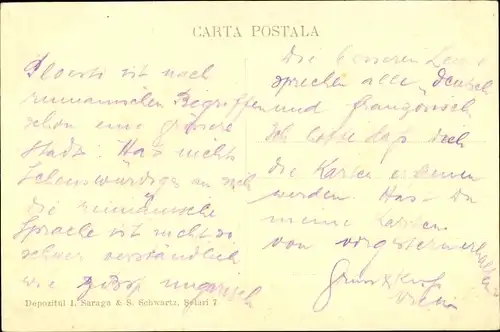 CARTA POSTALA
Ploesti ist nach
rumänischen Begriffen
schon eine grössere
Stadt. Hat nichts
Sehenswürdiges an sich
die rumänische
Sprache ist nicht so
schwer verständlich
wie ungarisch
Die besseren Leute
sprechen alle deutsch
und französisch
Ich hoffe daß dich
die Karten
werden. Hast Du
meine Karten
von vorgestern erhalten
Gruss & Kuss
Depozitul I. Saraga & S. Schwartz, Selari 7